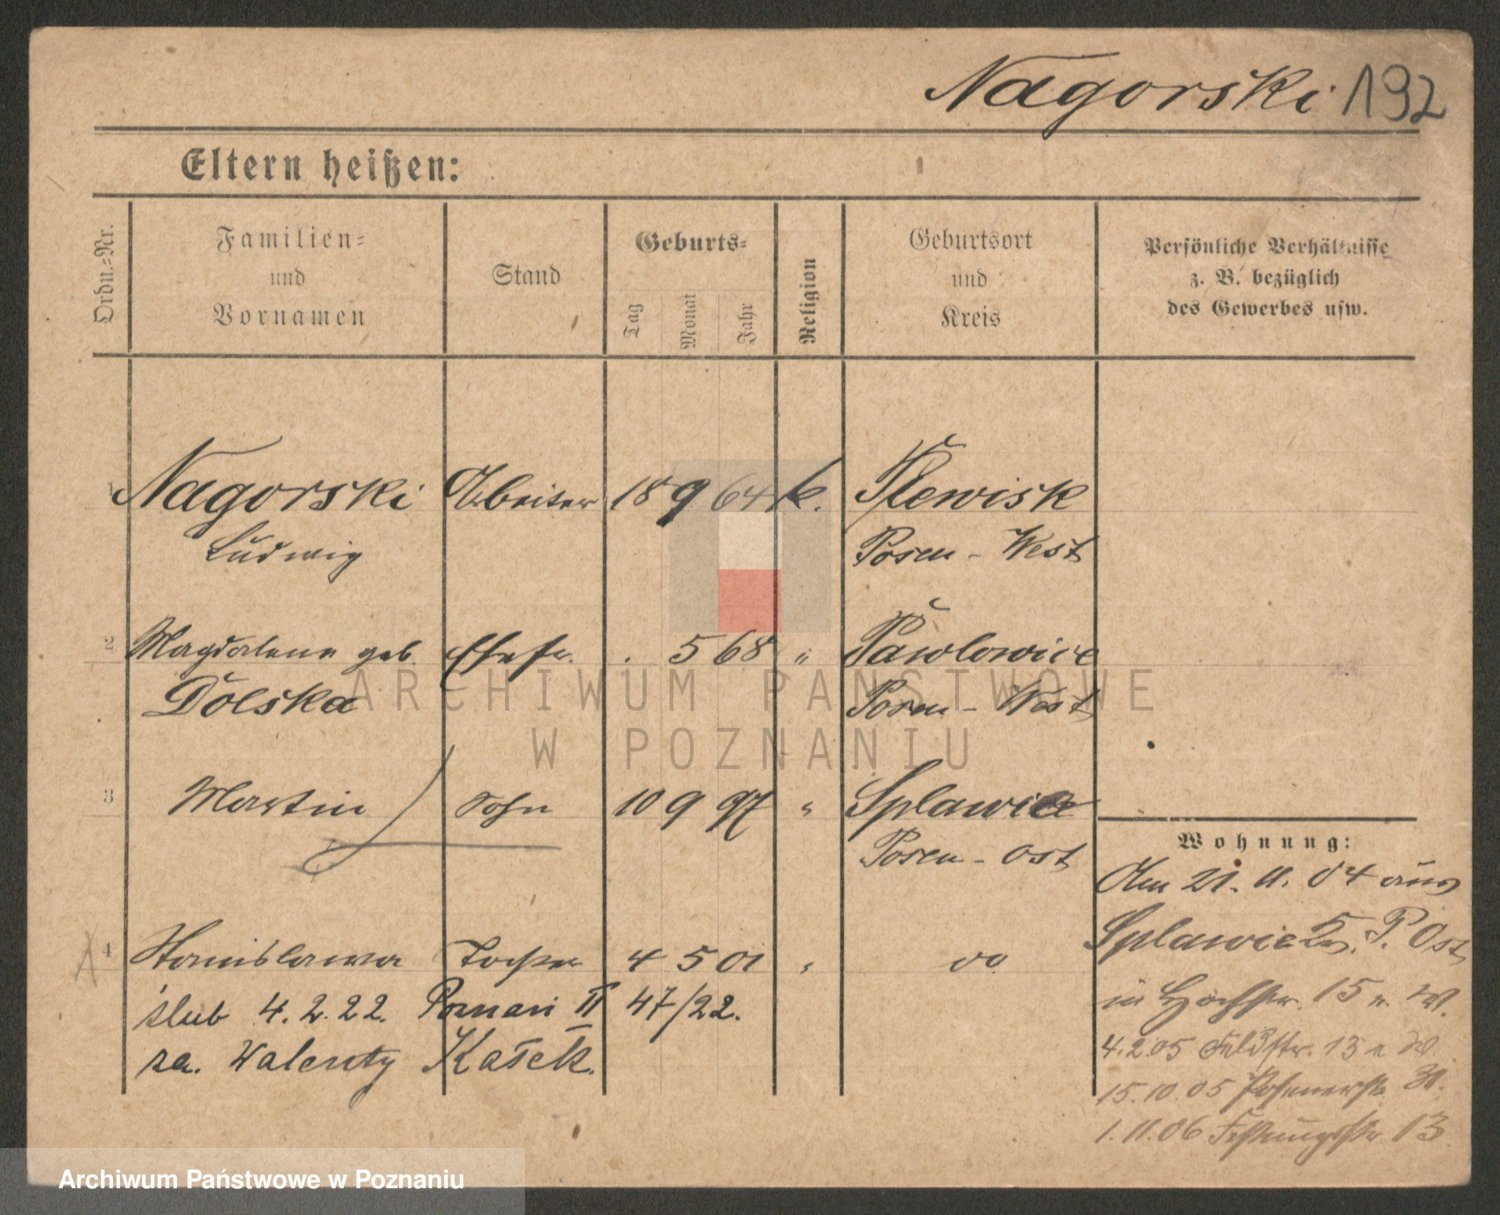 Nagorski 192
Eltern heißen:
Ordn.-Nr.
Familien-
und
Vornamen
Stand
Geburts-
Tag
Monat
Jahr
Religion
Geburtsort
und
Kreis
Persönliche Verhältnisse
z. B. bezüglich
des Gewerbes usw.
1 Nagorski Arbeiter 18 9 64 k. Plewisk
Ludwig Posen - West
2 Magdalena geb. Ehefr. . 5 68 " Pawlowice
Dolska Posen - West
ARCHIWUM PAŃSTWOWE
W POZNANIU
3 Martin Sohn 10 9 97 " Splawie
Posen - Ost
4 Stanislawa Tochter 4 5 01 "
ślub 4.2.22. Poznań II 47/22.
za. Walenty Kałek.
Wohnung:
Am 21. 11. 04 aus
Splawie P. Ost
in Hochstr. 15 n. W.
4.2.05 Feldstr. 13
15.10.05 Posenerstr. 31.
1.11.06 Festungsstr. 13
Archiwum Państwowe w Poznaniu